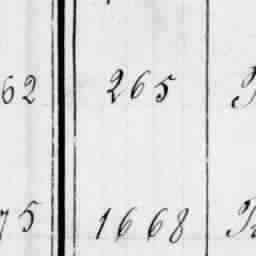 62 265
75 1668